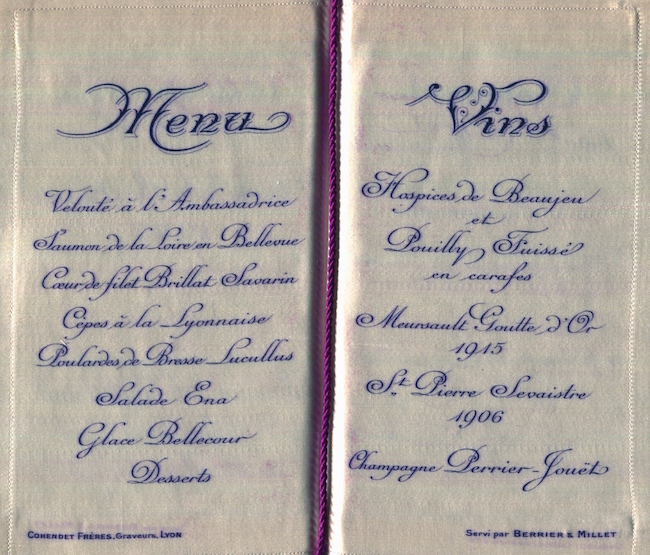 Menu
Velouté à l'Ambassadrice
Saumon de la Loire en Bellevue
Cœur de filet Brillat Savarin
Cèpes à la Lyonnaise
Poulardes de Bresse Lucullus
Salade Ena
Glace Bellecour
Desserts
COHENDET FRÈRES, Graveurs, LYON
Vins
Hospices de Beaujeu
et
Pouilly Fuissé
en carafes
Meursault Goutte d'Or
1915
St. Pierre Sevaistre
1906
Champagne Perrier-Jouët
Servi par BERRIER & MILLET